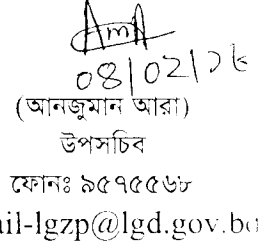 08/02/১৮
(আনজুমান আরা)
উপসচিব
ফোনঃ ৯৫৭৫৫৬৮
ail-lgzp@lgd.gov.bd